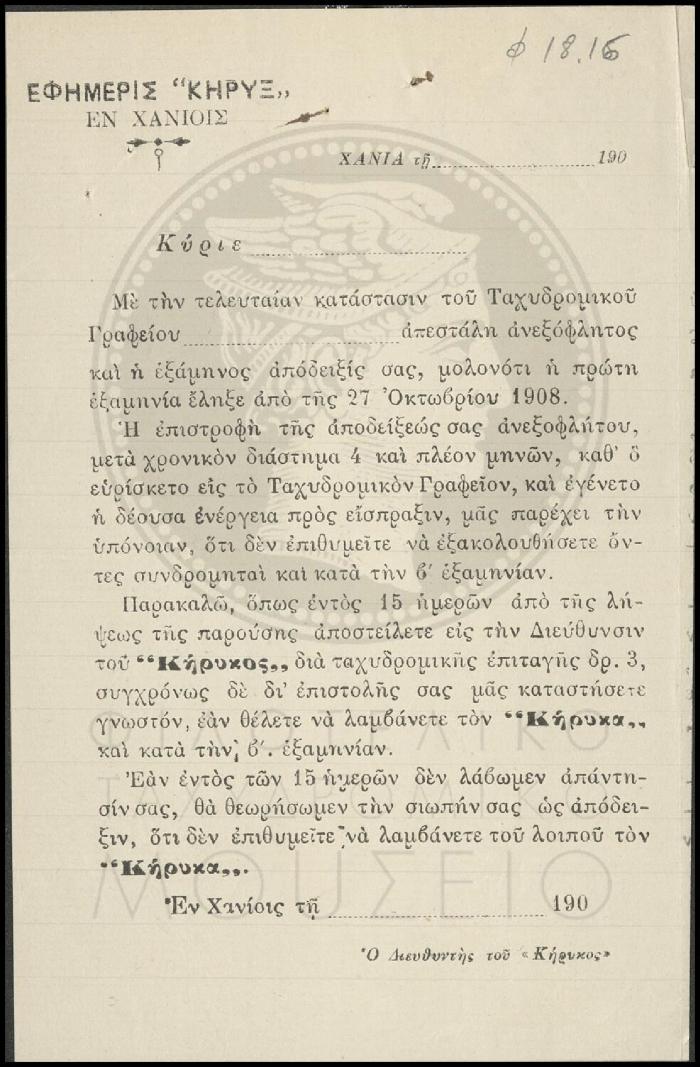 φ 18.16
ΕΦΗΜΕΡΙΣ “ΚΗΡΥΞ„
ΕΝ ΧΑΝΙΟΙΣ
ΧΑΝΙΑ τῇ 190
Κύριε
Μὲ τὴν τελευταίαν κατάστασιν τοῦ Ταχυδρομικοῦ
Γραφείου ἀπεστάλη ἀνεξόφλητος
καὶ ἡ ἑξάμηνος ἀπόδειξίς σας, μολονότι ἡ πρώτη
ἑξαμηνία ἔληξε ἀπὸ τῆς 27 Ὀκτωβρίου 1908.
Ἡ ἐπιστροφὴ τῆς ἀποδείξεώς σας ἀνεξοφλήτου,
μετὰ χρονικὸν διάστημα 4 καὶ πλέον μηνῶν, καθ’ ὃ
εὑρίσκετο εἰς τὸ Ταχυδρομικὸν Γραφεῖον, καὶ ἐγένετο
ἡ δέουσα ἐνέργεια πρὸς εἴσπραξιν, μᾶς παρέχει τὴν
ὑπόνοιαν, ὅτι δὲν ἐπιθυμεῖτε νὰ ἐξακολουθήσετε ὄν-
τες συνδρομηταὶ καὶ κατὰ τὴν β′ ἑξαμηνίαν.
Παρακαλῶ, ὅπως ἐντὸς 15 ἡμερῶν ἀπὸ τῆς λή-
ψεως τῆς παρούσης ἀποστείλετε εἰς τὴν Διεύθυνσιν
τοῦ “Κήρυκος„ διὰ ταχυδρομικῆς ἐπιταγῆς δρ. 3,
συγχρόνως δὲ δι’ ἐπιστολῆς σας μᾶς καταστήσετε
γνωστόν, ἐὰν θέλετε νὰ λαμβάνετε τὸν “Κήρυκα„
καὶ κατὰ τὴν β′. ἑξαμηνίαν.
Ἐὰν ἐντὸς τῶν 15 ἡμερῶν δὲν λάβωμεν ἀπάντη-
σίν σας, θὰ θεωρήσωμεν τὴν σιωπήν σας ὡς ἀπόδει-
ξιν, ὅτι δὲν ἐπιθυμεῖτε νὰ λαμβάνετε τοῦ λοιποῦ τὸν
“Κήρυκα„.
Ἐν Χανίοις τῇ 190
Ὁ Διευθυντὴς τοῦ «Κήρυκος»
ΦΙΛΟΤΕΛΙΚΟ
ΤΑΧΥΔΡΟΜΙΚΟ
ΜΟΥΣΕΙΟ